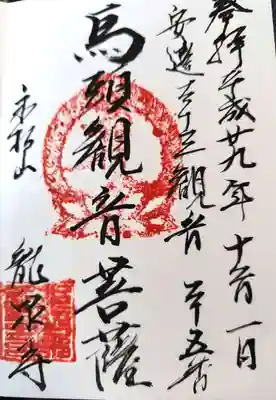 登拝平成廿九年十一月一日
安達三十三観音 第五番
馬頭観音菩薩
永松山 龍泉寺